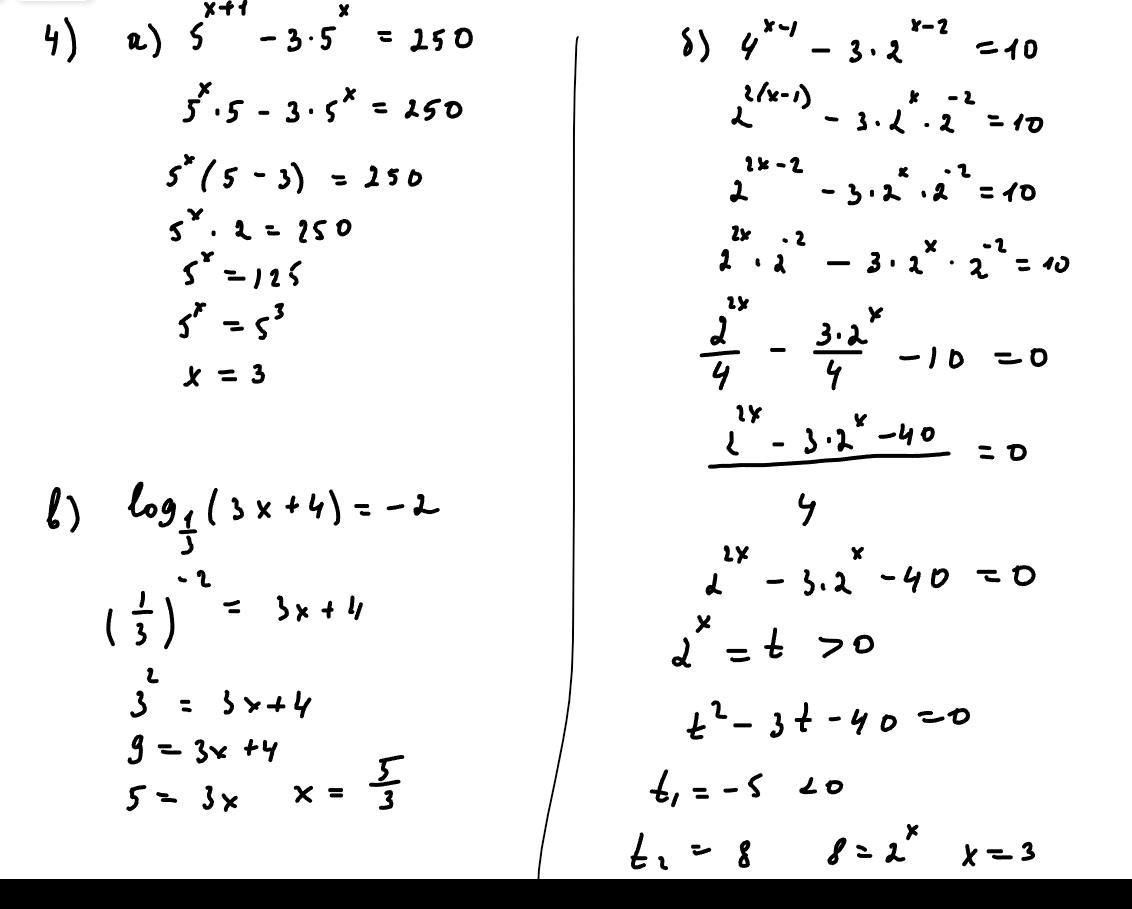 4) а) 5^{x+1} - 3·5^x = 250
5^x·5 - 3·5^x = 250
5^x(5 - 3) = 250
5^x · 2 = 250
5^x = 125
5^x = 5^3
x = 3
б) 4^{x-1} - 3·2^{x-2} = 10
2^{2(x-1)} - 3·2^x·2^{-2} = 10
2^{2x-2} - 3·2^x·2^{-2} = 10
2^{2x}·2^{-2} - 3·2^x·2^{-2} = 10
\frac{2^{2x}}{4} - \frac{3·2^x}{4} - 10 = 0
\frac{2^{2x} - 3·2^x - 40}{4} = 0
2^{2x} - 3·2^x - 40 = 0
2^x = t > 0
t^2 - 3t - 40 = 0
t_1 = -5 < 0
t_2 = 8 8 = 2^x x = 3
в) log_{\frac{1}{3}}(3x+4) = -2
(\frac{1}{3})^{-2} = 3x+4
3^2 = 3x+4
9 = 3x+4
5 = 3x x = \frac{5}{3}